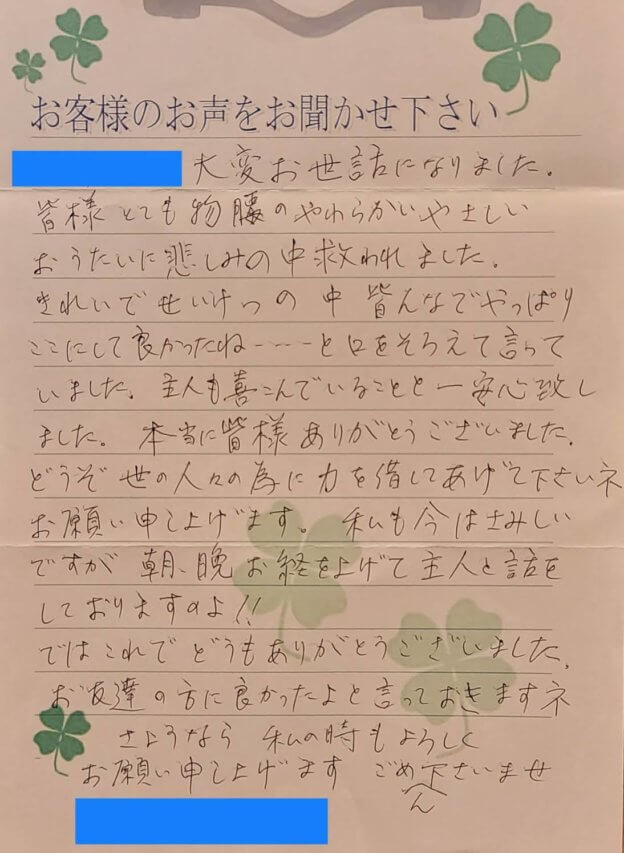 お客様のお声をお聞かせ下さい
大変お世話になりました。
皆様とても物腰のやわらかいやさしい
おうたいに悲しみの中救われました。
きれいでせいけつの中 皆んなでやっぱり
ここにして良かったね----と口をそろえて言って
いました。主人も喜こんでいることと一安心致し
ました。本当に皆様ありがとうございました。
どうぞ世の人々の為に力を借してあげて下さいネ
お願い申し上げます。私も今はさみしい
ですが 朝、晩お経を上げて主人と話を
しておりますのよ!!
ではこれで どうもありがとうございました。
お友達の方に良かったよと言っておきますネ
さようなら 私の時もよろしく
お願い申し上げます ごめ下さいませ
ん